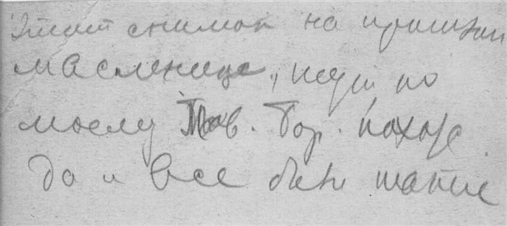 Этот снимок на прошлой
масленице, иду по
моему Тов. Бор. похож
да и все были такие